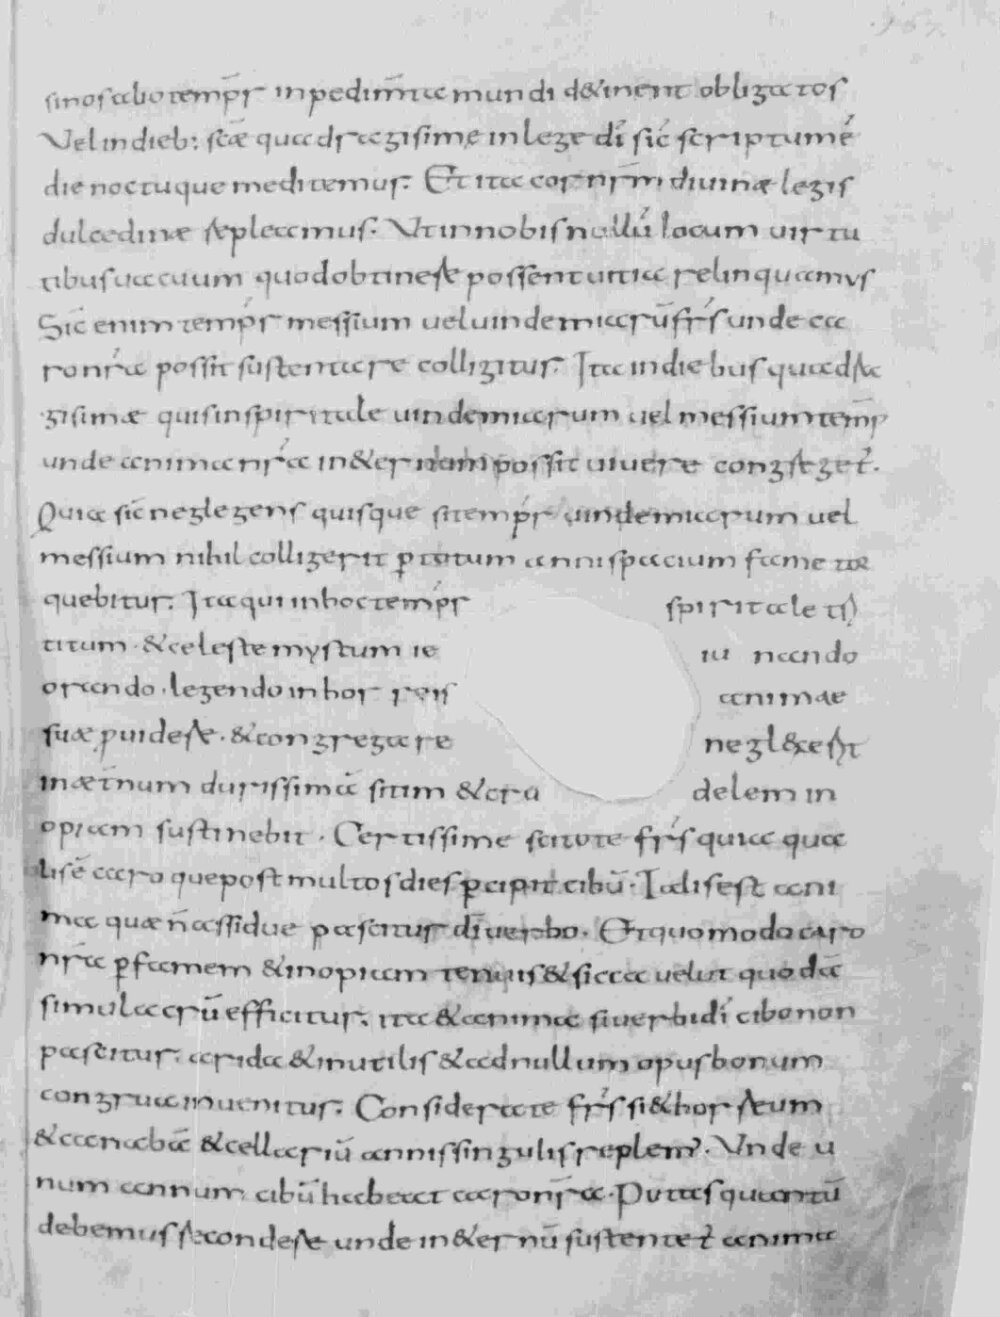 sinos abo temp̄r inpedim̄ta mundi d&inent obligatos
Vel in dieb; sc̄æ quadragisime in lege dī sic̄ scriptum ē
die noctuque meditemur. Et ita cor nr̄m diuinæ legis
dulcedinæ repleamus. Vt in nobis nullū locum uirtu
tibus uacuum quod obtinere possent uitia relinquamus
Sic̄ enim temp̄r messium uel uindemiarū fr̄s unde ca
ro nr̄a possit sustentare colligitur. Ita in diebus quadra
gisimæ quasi spiritale uindemiarum uel messium temp̄
unde anima nr̄a in &ernum possit uiuere congregēt.
Quia sic̄ neglegens quisque si temp̄r uindemiarum uel
messium nihil colligerit ꝑ totum anni spacium fame tor
quebitur. Ita qui in hoc temp̄r spiritale tri
titum & celeste mystum ieiunando
orando legendo in horreis animae
suæ ꝓuidere. & congregare neglexerit
in æt̄num durissimā sitim & crudelem in
opiam sustinebit. Certissime scitote fr̄s quia qua
lis ē caro que post multos dies ꝑcipit cibū. Talis est ani
ma quæ n̄ assidue pascitur dī uerbo. Et quomodo caro
nr̄a ꝑ famem & inopiam tenuis & sicca uelut quodā
simulacrū efficitur. ita & anima si uerbi dī cibo non
pascitur. arida & inutilis & ad nullum opus bonum
congrua inuenitur. Considerate fr̄s si & horreum
& canabā & cellariū annis singulis replem̄. Vnde u
num annum cibū habeat caro nr̄a. Putas quantū
debemus recondere unde in &ernū sustentet̄ anima